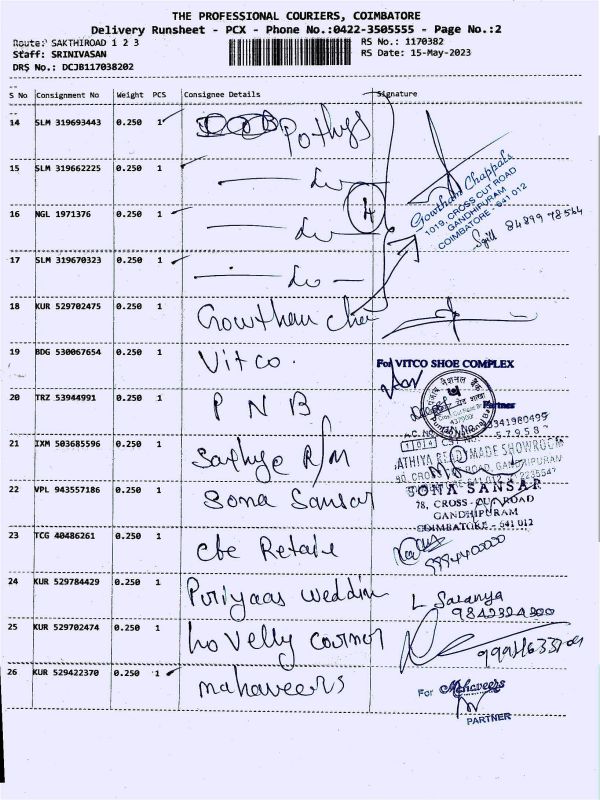 THE PROFESSIONAL COURIERS, COIMBATORE
Delivery Runsheet - PCX - Phone No.:0422-3505555 - Page No.:2
Route: SAKTHIROAD 1 2 3
RS No.: 1170382
Staff: SRINIVASAN
RS Date: 15-May-2023
DRS No.: DCJB117038202
S No Consignment No Weight PCS Consignee Details Signature
14 SLM 319693443 0.250 1 Pothys
15 SLM 319662225 0.250 1
4
Gowtham Chappals
1019, CROSS CUT ROAD
GANDHIPURAM
COIMBATORE - 641 012
16 NGL 1971376 0.250 1
17 SLM 319670323 0.250 1
18 KUR 529702475 0.250 1 Gowtham Cha
19 BDG 530067654 0.250 1 Vitco.
For VITCO SHOE COMPLEX
Partner
20 TRZ 53944991 0.250 1 P N B
21 IXM 503685596 0.250 1 Sathya R/M
22 VPL 943557186 0.250 1 Sona Sansar
SONA SANSAR
78, CROSS-CUT ROAD
GANDHIPURAM
COIMBATORE - 641 012
23 TCG 40486261 0.250 1 cbe Retail
24 KUR 529784429 0.250 1 Puriyaas weddin
L Saranya
25 KUR 529702474 0.250 1 Lovelly corner
26 KUR 529422370 0.250 1 mahaveers
For Mahaveers
PARTNER